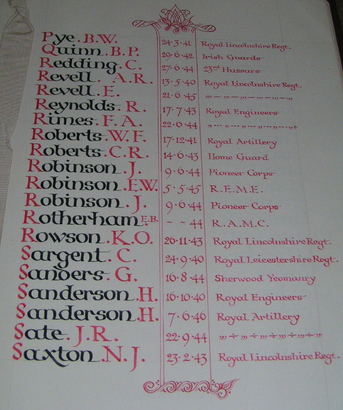 Pye. B.W. 24·3·41 Royal Lincolnshire Regt.
Quinn. B.P. 20·6·42 Irish Guards
Redding. C. 27·6·44 23rd Hussars
Revell. A.R. 13·5·40 Royal Lincolnshire Regt.
Revell. E. 21·6·45 " " " "
Reynolds. R. 17·7·43 Royal Engineers
Rimes. F.A. 22·6·44 " " " "
Roberts. W.F. 17·12·41 Royal Artillery
Roberts. C.R. 14·6·43 Home Guard
Robinson. J. 9·6·44 Pioneer Corps
Robinson. E.W. 5·5·45 R.E.M.E.
Robinson. J. 9·6·44 Pioneer Corps
Rotherham. E.B. - - 44 R.A.M.C.
Rowson. K.O. 26·11·43 Royal Lincolnshire Regt.
Sargent. C. 24·9·40 Royal Leicestershire Regt.
Sanders. G. 16·8·44 Sherwood Yeomanry
Sanderson. H. 16·10·40 Royal Engineers
Sanderson. H. 7·6·46 Royal Artillery
Sate. J.R. 22·9·44 " " " "
Saxton. N.J. 23·2·43 Royal Lincolnshire Regt.